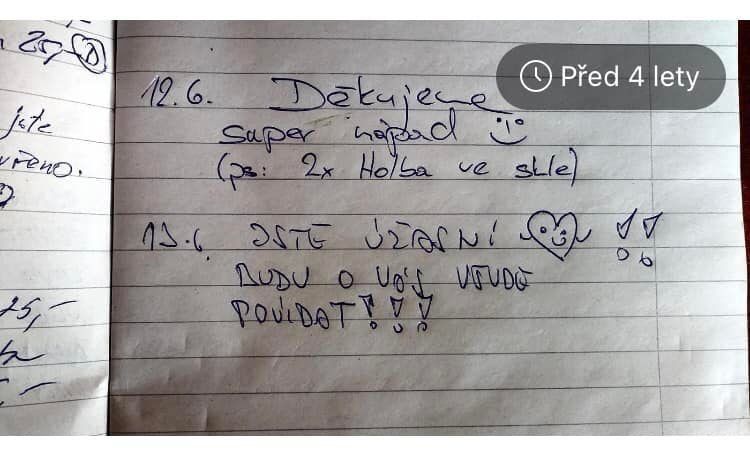 25,-
jste
12.6. Děkujeme
super nápad
(ps: 2x Holba ve skle)
13.6. JSTE ÚŽASNÍ !!
BUDU O VÁS VŠUDE
POVÍDAT!!!
25,-
Před 4 lety